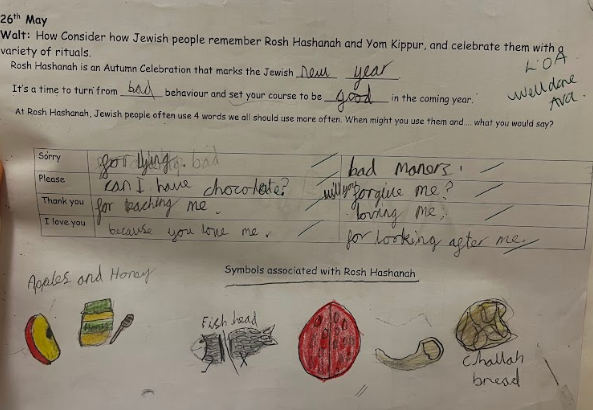 26th May
Walt: How Consider how Jewish people remember Rosh Hashanah and Yom Kippur, and celebrate them with a
variety of rituals.
LOA
Rosh Hashanah is an Autumn Celebration that marks the Jewish new year
It's a time to turn from bad behaviour and set your course to be good in the coming year.
Well done
Ava.
At Rosh Hashanah, Jewish people often use 4 words we all should use more often. When might you use them and.... what you would say?
Sorry for lying. bad bad maners.
Please can I have chocolate? will you forgive me?
Thank you for teaching me. loving me.
I love you because you love me. for looking after me.
Apples and Honey
Symbols associated with Rosh Hashanah
Fish head
challah
bread